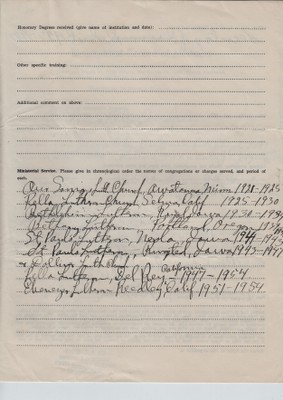 Honorary Degrees received (give name of institution and date):
Other specific training:
Additional comment on above:
Ministerial Service. Please give in chronological order the names of congregations or charges served, and period of
each.
Our Luth Church Owatonna Minn 1921-1925
Pella Luthern Church Selma, Calif 1925-1930
Bethlehem Luthern, Iowa 1930-1934
Bethany Luthern, Portland, Oregon
St Pauls Luthern, Neola, Iowa 1941-
St. Pauls Luthern, Ringsted, Iowa 1945-1947
& Luth Church
Pella Luthern, Del Rey California 1947-1954
Ebenezer Luthern Reedley, Calif 1951-1954